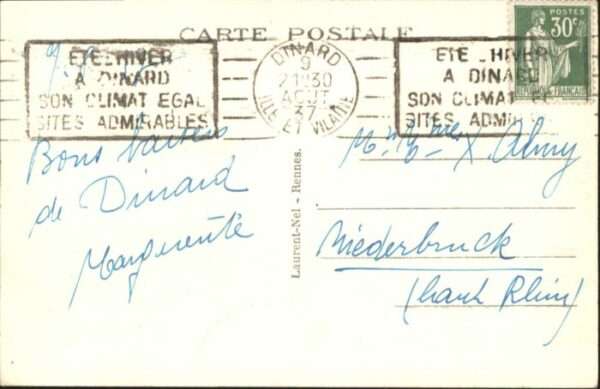 CARTE POSTALE
POSTES
30c
REPUBLIQUE FRANÇAISE
ETE _ HIVER
A DINARD
SON CLIMAT EGAL
SITES ADMIRABLES
DINARD
9
21H30
AOUT
37
ILLE ET VILAINE
ETE _ HIVER
A DINARD
SON CLIMAT EG
SITES ADMI
Bons baisers
de Dinard
Marguerite
Laurent-Nel - Rennes.
Mr et Mme X. Almy
Niederbruck
(haut Rhin)